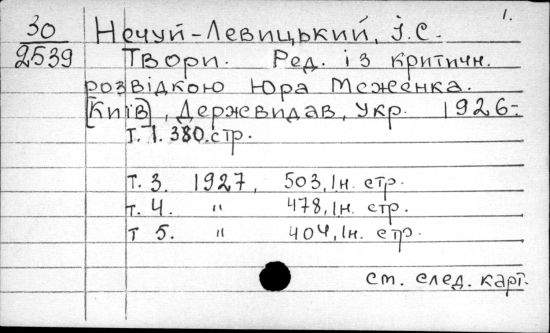 1.
30 Нечуй-Левицький, І.С.
2539 Твори. Ред. із критичн.
розвідкою Юра Меженка.
[Київ], Держвидав, Укр. 1926-
т. 1. 380.стр.
т. 3. 1927, 503, Ін. стр.
т. 4. " 478, Ін. стр.
т 5. " 404, Ін. стр.
см. след. карт.